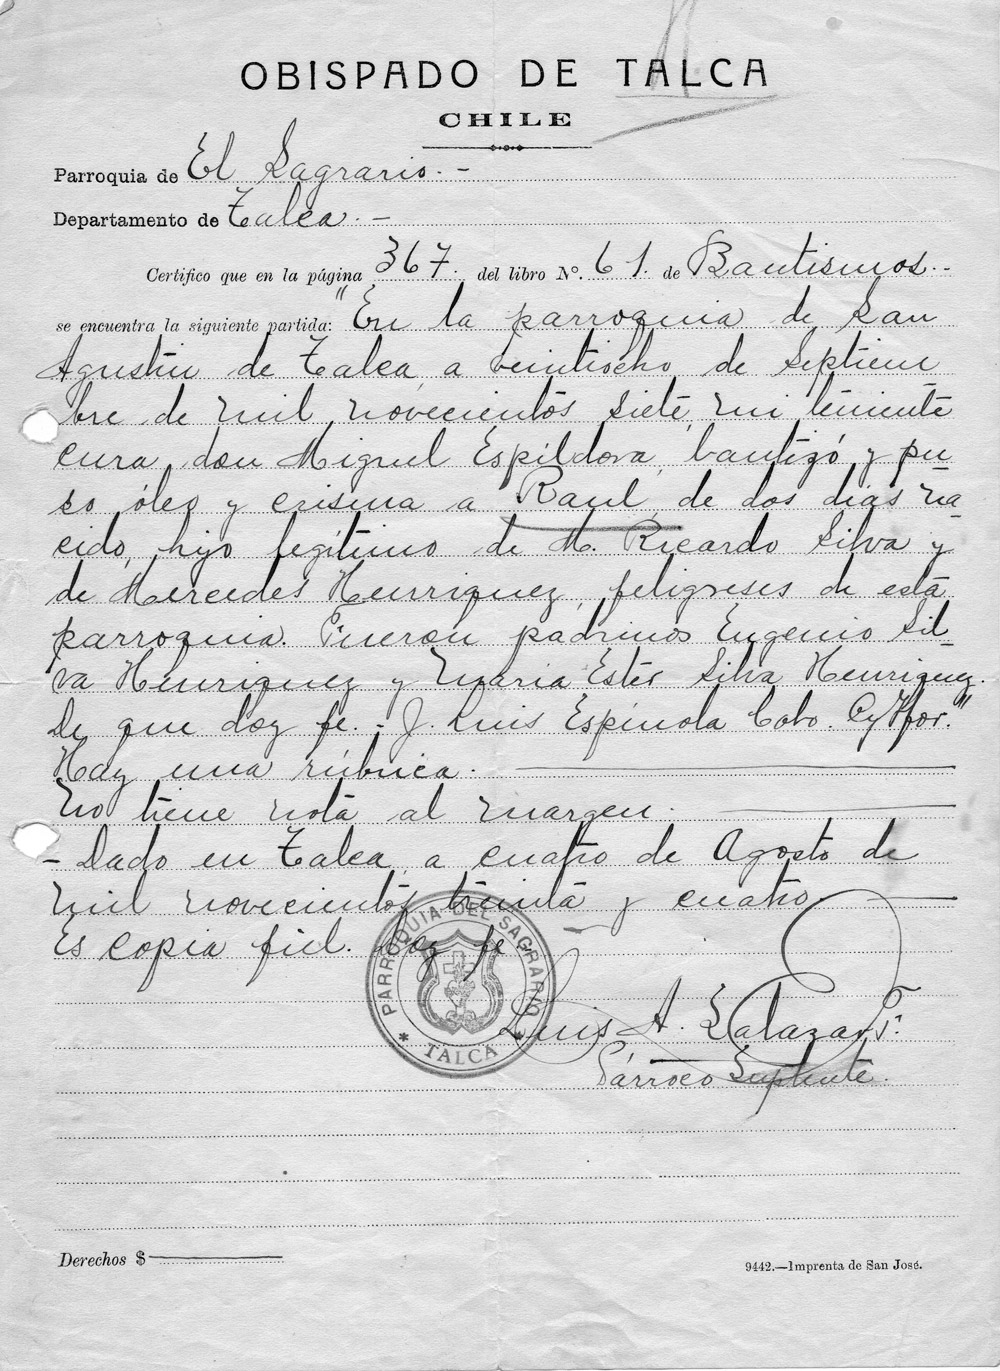 OBISPADO DE TALCA
CHILE
Parroquia de El Sagrario. -
Departamento de Talca. -
Certifico que en la página 367. del libro N°. 61. de Bautismos. -
se encuentra la siguiente partida: "En la parroquia de San
Agustín de Talca, a veintiocho de Septiem
bre de mil novecientos siete, mi teniente
cura, don Miguel Espíldora, bautizó y pu
so óleo y crisma a Raul, de dos dias na
cido, hijo legítimo de M. Ricardo Silva y
de Mercedes Henriquez, feligreses de esta
parroquia. Fueron padrinos Eugenio Sil
va Henriquez y Maria Ester Silva Henriquez.
De que doy fe. - J. Luis Espínola Cobo.
Hay una rúbrica.
No tiene nota al margen.
- Dado en Talca, a cuatro de Agosto de
mil novecientos treinta y cuatro
Es copia fiel. Doy fe
PARROQUIA DEL SAGRARIO
* TALCA *
Luis A. Salazar S.
Párroco Suplente.
Derechos $
9442.—Imprenta de San José.